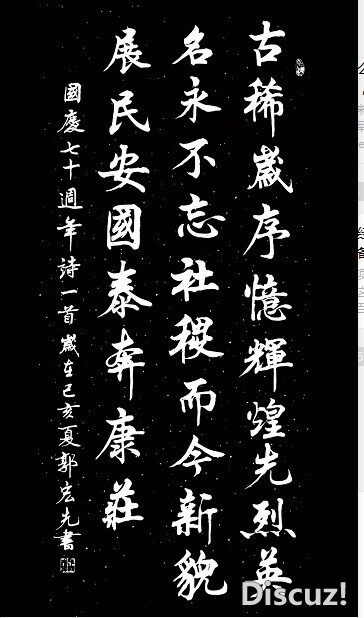 古稀歲序憶輝煌先烈英
名永不忘社稷而今新貌
展民安國泰奔康莊
國慶七十週年詩一首歲在己亥夏郭宏先書
Discuz!